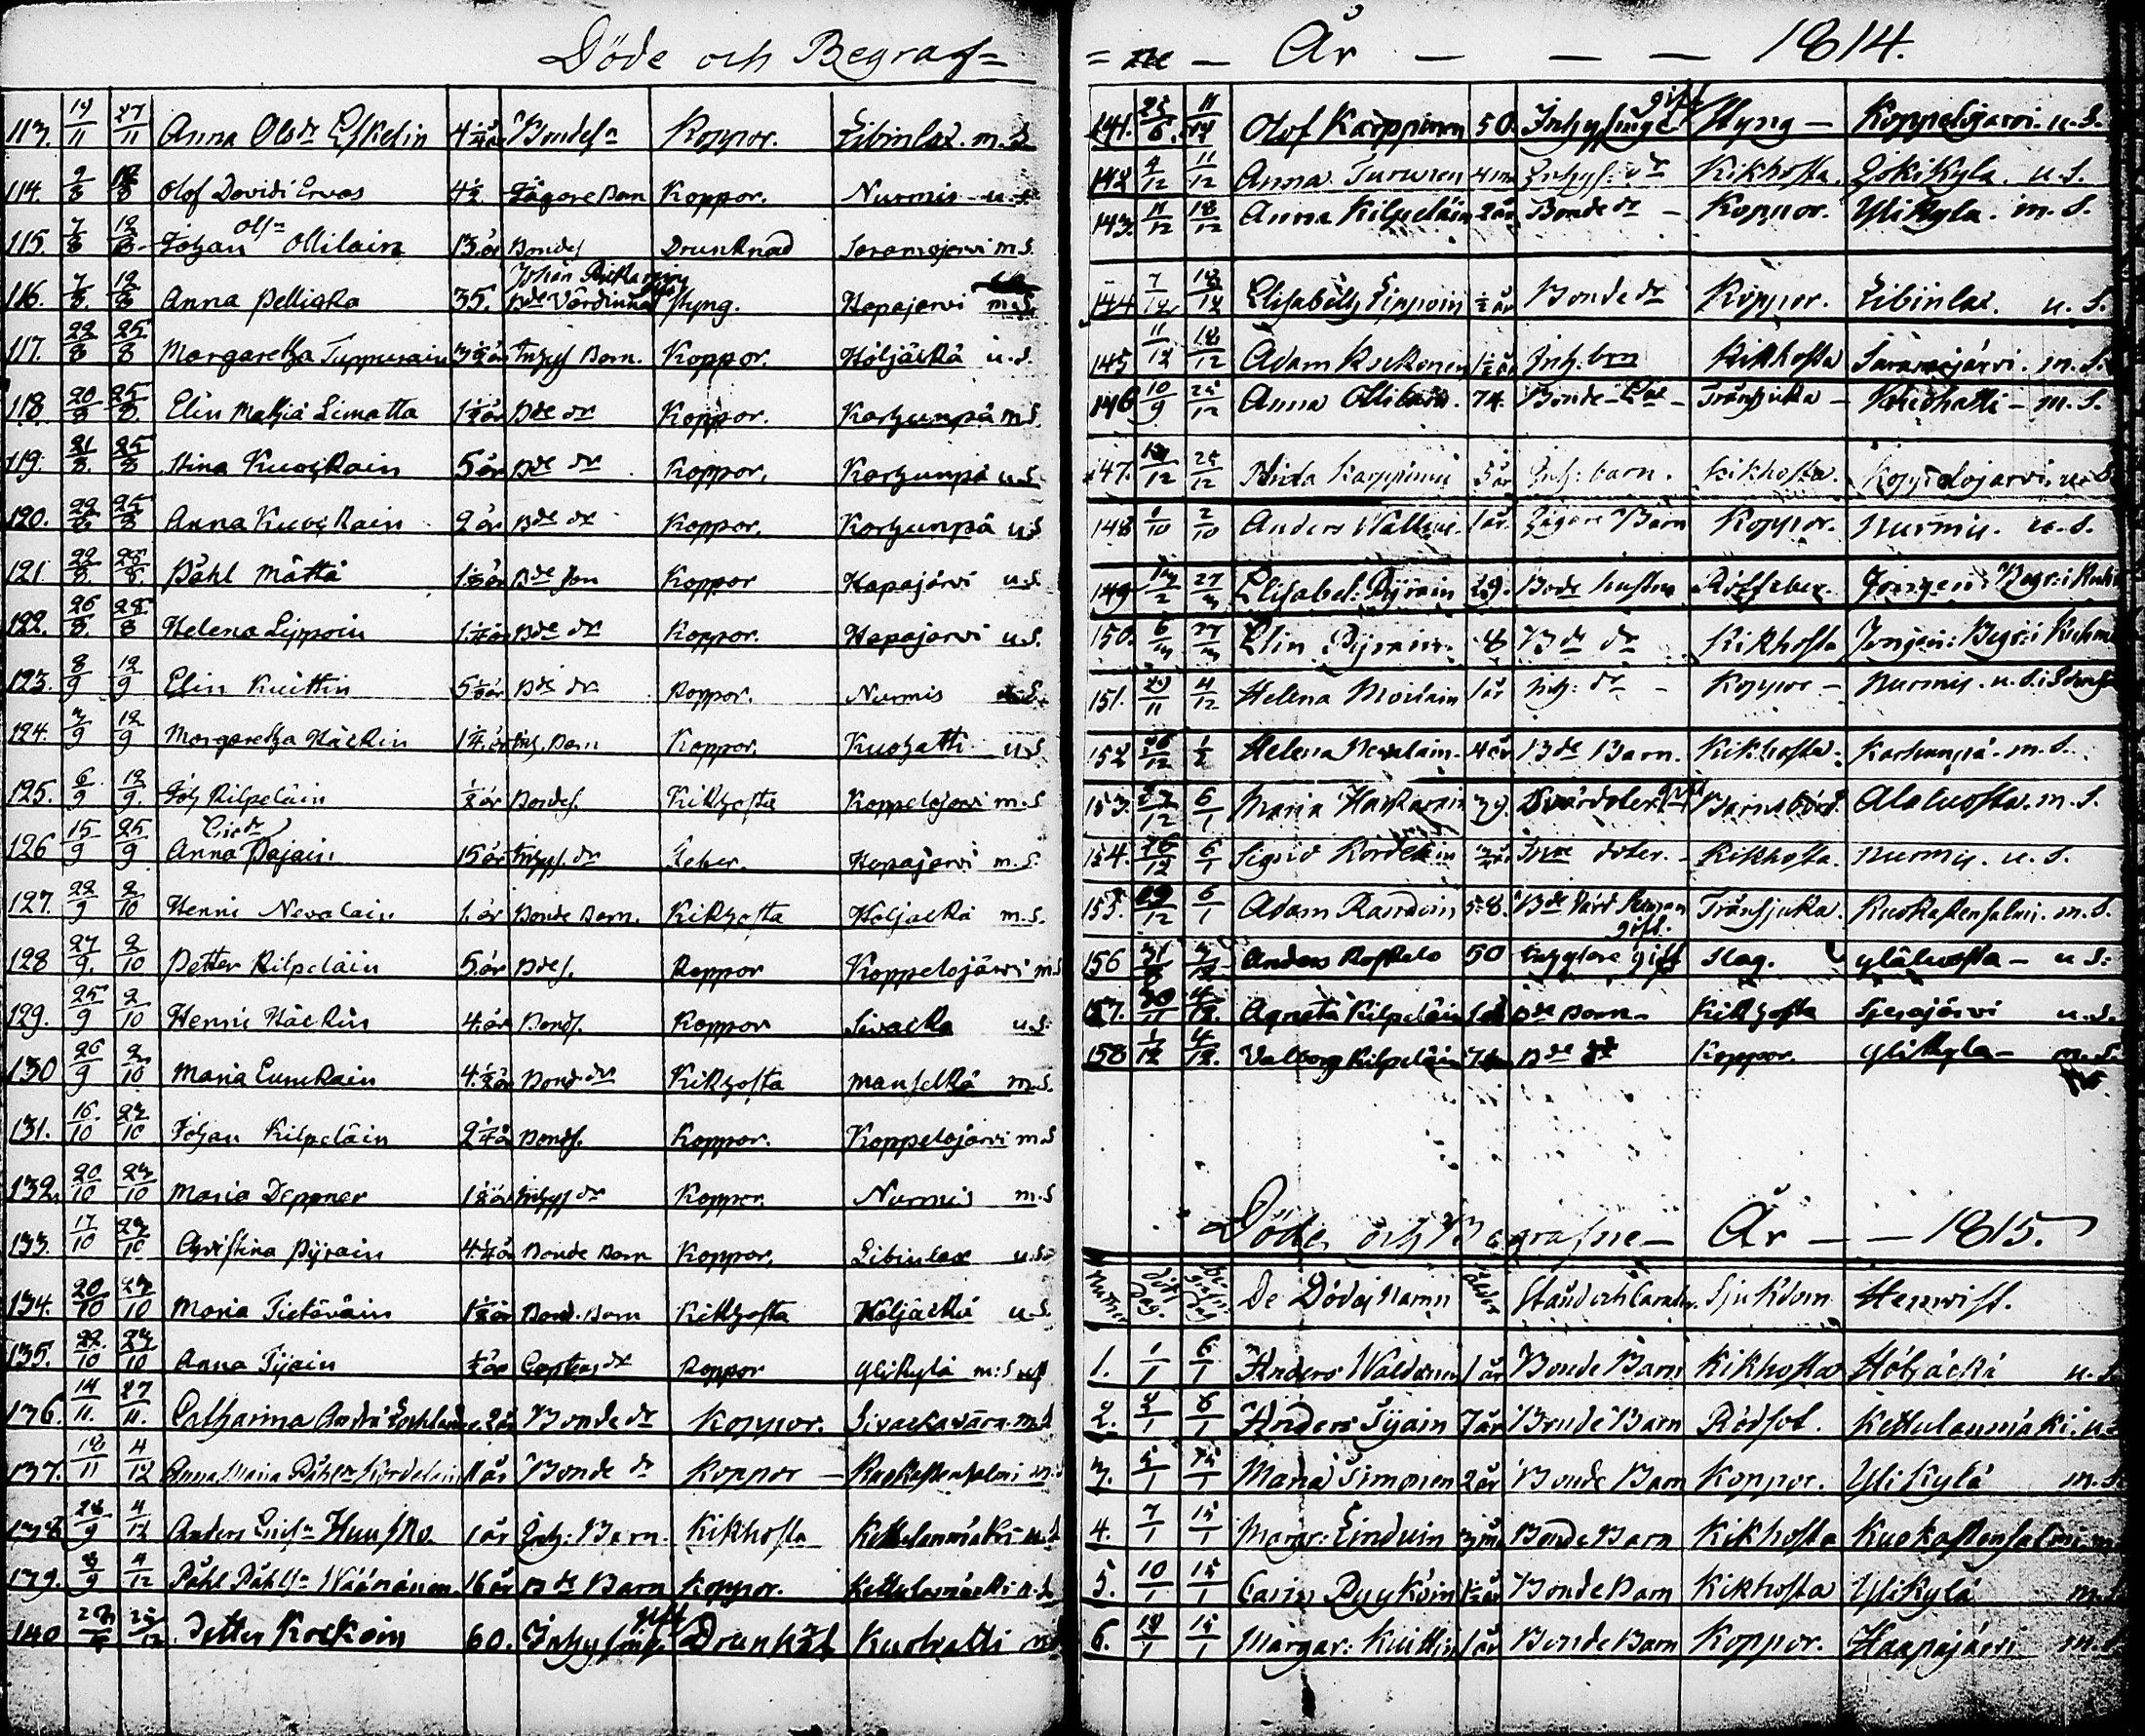 Döde och Begraf=
113. 14/11 27/11 Anna Olsdr Eskelin 4½ år Bondesn Koppor. Libinlax. m.S.
114. 9/8 12/8 Olof Davidi Ervas 4½. Lägare Barn Koppor. Nurmis u.S.
115. 7/8 12/8 Johan Olssn Ollilain 13 år Bondes Drunknad Saramojervi m.S.
116. 7/8 12/8 Anna Pelligka 35. Bde Värdinna Styng. Hapajervi m.S.
117. 22/8 25/8 Margaretha Tuppurain 3½ år Inhys Barn. Koppor. Höljäckä u.S.
118. 20/8 25/8 Elin Mathiæ Limatta 1½ år Bde dr Koppor. Karhunpä m.S.
119. 21/8 25/8 Stina Kuockain 5 år Bde dr Koppor. Karhunpä u.S.
120. 22/8 25/8 Anna Kuockain 2 år Bde dr Koppor. Karhunpä u.S.
121. 22/8 28/8 Påhl Mättä 1½ år Bde son Koppor Hapajärvi u.S.
122. 26/8 28/8 Helena Lippoin 1¼ år Bde dr Koppor. Hapajarvi u.S.
123. 8/9 12/9 Elin Kuittin 5½ år Bde dr Koppor. Nurmis u.S.
124. 3/9 12/9 Margaretha Häckin 1¼ år Inh. Barn Koppor. Kuohatti u.S.
125. 6/9 12/9 Joh Kilpeläin ½ år Bondes. Kikhosta Koppelojervi m.S.
126 15/9 25/9 Anna Pajain 15 år Inhys. dr Feber. Hapajarvi m.S.
127. 22/9 2/10 Henric Nevalain 1. år Bonde Barn. Kikhosta Höljäckä m.S.
128 27/9 2/10 Petter Kilpeläin 5. år Bdes. Koppor Koppelojärvi m.S
129. 25/9 2/10 Henric Häckin 4. år Bonds. Koppor Sivacka u.S.
130 26/9 2/10 Maria Eunckain 4½ år Bond. dr Kikhosta Manselkä m.S.
131. 16/10 23/10 Johan Kilpeläin 2¼ år Bonds. Koppor. Koppelojärvi m.S
132. 20/10 23/10 Maria Deppner 1½ år Inhys dr Koppor. Nurmis m.S
133. 17/10 23/10 Christina Pyrain 4¼ år Bonde Barn Koppor. Libinlax u.S.
134. 20/10 23/10 Maria Tietäväin 1½ år Bond. Barn Kikhosta Höljäckä u.S.
135. 22/10 23/10 Anna Tijain ½ år dr Koppor Ylikylä m.S
136. 14/11. 27/11. Catharina 2 år Bonde dr Koppor. Sivackavara. m.S
137. 18/11 4/12 Anna Maria Påhlsdr Kordelain 1 år Bonde dr Koppor — Kuokastensalmi m.S
138 28/9 4/12 Anders Ericsn Huusko. 1 år Inh: Barn. Kikhosta Kettulanmäki u.S
139. 3/9 4/12 Påhl Påhlssn Wäänänen. 16 år Bde Barn Koppor. Kettulanmäcki u.S
140 Petter Kockoin 60. Inhysing. gift Drunkat Kuohatti
= ne — År — — — 1814.
141. 25/6. 11/12 Olof Karppinen 50. Inhysinge gift Styng — Koppelojarvi. u.S.
142 4/12 11/12 Anna Turunen 4 m Inhys: dr Kikhosta. Jokikyla. u.S.
143. 11/12 18/12 Anna Kilpeläin 2 år Bonde dr — Koppor. Ylikyla. m.S.
144 7/12 18/12 Elisabeth Lippoin ½ år Bonde dr Koppor. Libinlax. u.S.
145 11/12 18/12 Adam Kuckonen 1½ år Inh: brn Kikhosta Saramojärvi. m.S.
146 10/9 25/12 Anna Ollilain. 74. Bonde — Tränsjuka — Kuohatti — m.S.
147. 25/12 Karppinen 5 år Inh: barn. Kikhosta. Koppelojarvi. u.S
148 1/10 2/10 Anders Wallius. 1 år. Lägare Barn Koppor. Nurmis. u.S.
149 Elisabet: Pyrain 29. Bode hustru Rötfeber. Jongeri: Begr: i
150. 6/3 27/3 Elin Pyrain. 8 Bde dr Kikhosta Jongeri: Begr: i Kuhmo
151. 20/11 4/12 Helena Moilain 1 år Inh: dr — Koppor — Nurmis. u.S. i
152 1/2 Helena Nevalain. 4 år Bde Barn. Kikhosta. Karhunpä. m.S.
153. 6/1 Maria 39. gift Barnsbörd. Alaluosta. m.S.
154. 26/12 6/1 Sigrid Kordelin Inh doter. — Kikhosta. Nurmis. u.S.
155. 6/1 Adam Randoin 58. Bde Värd gift. Tränsjuka. Kuokastensalmi. m.S.
156 Anders Roskelo 50 Inhysare gift Slag. Yläluosta — u.S.
157. 30/11 4/12. Agneta Kilpeläin Bde Barn. Kikhosta Sperajärvi u.S.
158 1/12 4/12. Valborg Kilpeläin Bde dr Koppor. Ylikyla — m.S.
Döde och Begrafne — År — — 1815.
De Dödas Namn Ålder Stånd och Caracter Sjukdom Hemvist.
1. 1/1 6/1 Anders Waldoin 1 år Bonde Barn Kikhosta Höljäckä u.S.
2. 2/1 6/1 Anders Tijain 7 år Bonde Barn Rödsot. Kettulanmäki. u.S
3. 5/1 15/1 Maria Simonen 2 år Bonde Barn Koppor. Ylikylä m.S.
4. 7/1 15/1 Margr: Lindvin 3 m Bonde Barn Kikhosta Kuokastensalmi. m
5. 10/1 15/1 Carin Pyyköin ½ år Bonde Barn Kikhosta Ylikylä m.S
6. 14/1 15/1 Margar: Kuittin 1 år Bonde Barn Koppor. Haapajärvi m.S